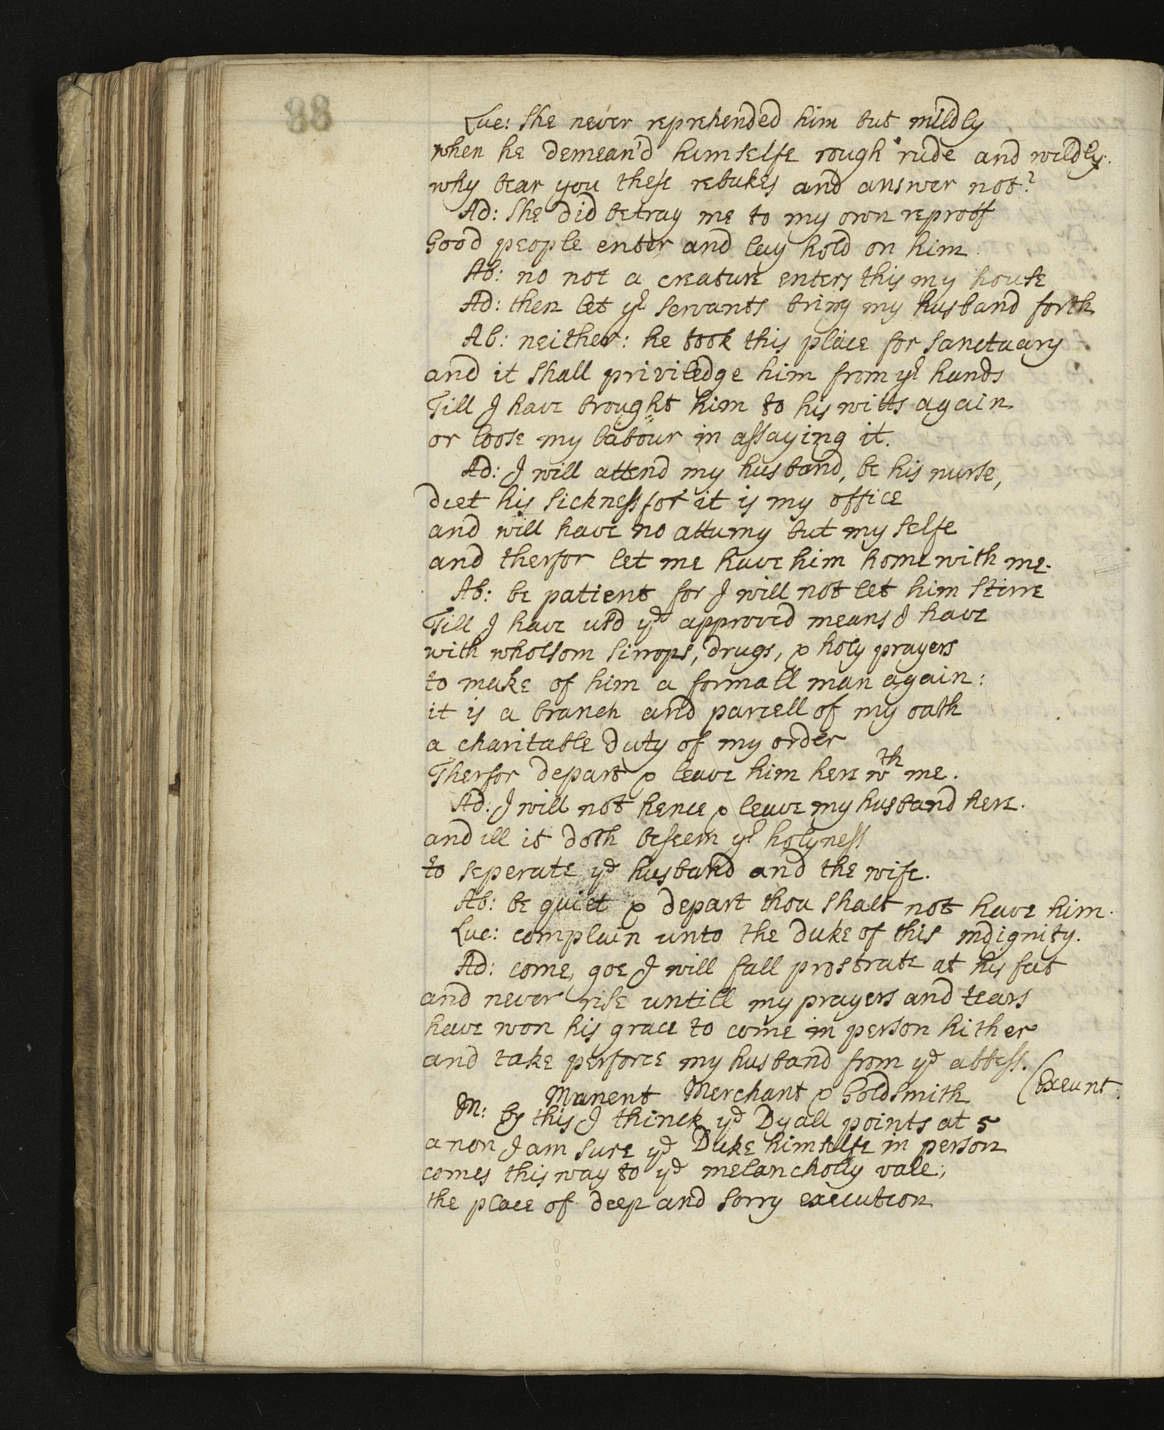 88
Luc: She never reprehended him but mildly
when he demean'd himselfe rough rude and wildly.
why bear you these rebukes and answer not?
Ad: She did betray me to my own reproof
Good people enter and lay hold on him
Ab: no not a creature enters this my house
Ad: then let yr servants bring my husband forth
Ab: neither: he took this place for sanctuary
and it shall priviledge him from yr hands
Till I have brought him to his witts again
or loose my labour in assaying it.
Ad: I will attend my husband, be his nurse,
diet his sickness for it is my office
and will have no atturny but my selfe
and therfor let me have him home with me.
Ab: be patient for I will not let him stirre
Till I have usd ye approved means I have
with wholsom sirrops, drugs, & holy prayers
to make of him a formall man again:
it is a branch and parcell of my oath
a charitable duty of my order
Therfor depart & leave him here wth me.
Ad: I will not hence & leave my husband here.
and ill it doth beseem yr holyness
to seperate ye husband and the wife.
Ab: be quiet & depart thou shalt not have him.
Luc: complain unto the duke of this indignity.
Ad: come, goe I will fall prostrate at his feet
and never rise untill my prayers and tears
have won his grace to come in person hither
and take perforce my husband from ye abbess.
(Exeunt.
Manent Merchant & Goldsmith
M: By this I thinck ye Dyall points at 5
anon I am sure ye Duke himselfe in person
comes this way to ye melancholly vale,
the place of deep and sorry execution